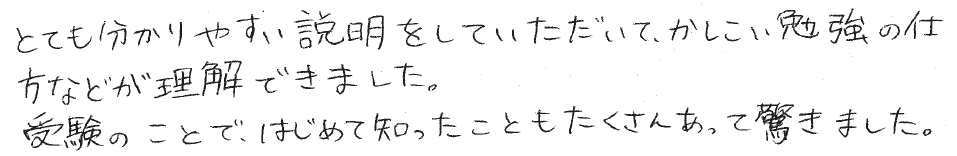 とても分かりやすい説明をしていただいて、かしこい勉強の仕
方などが理解できました。
受験のことで、はじめて知ったこともたくさんあって驚きました。